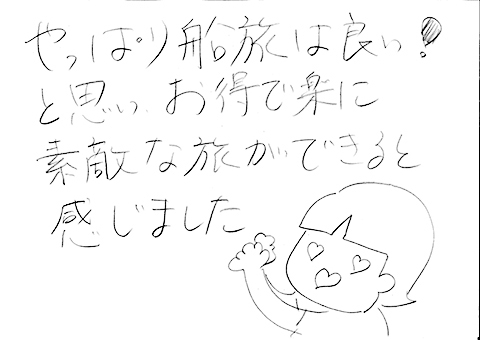 やっぱり船旅は良い!
と思い、お得で楽に
素敵な旅ができると
感じました